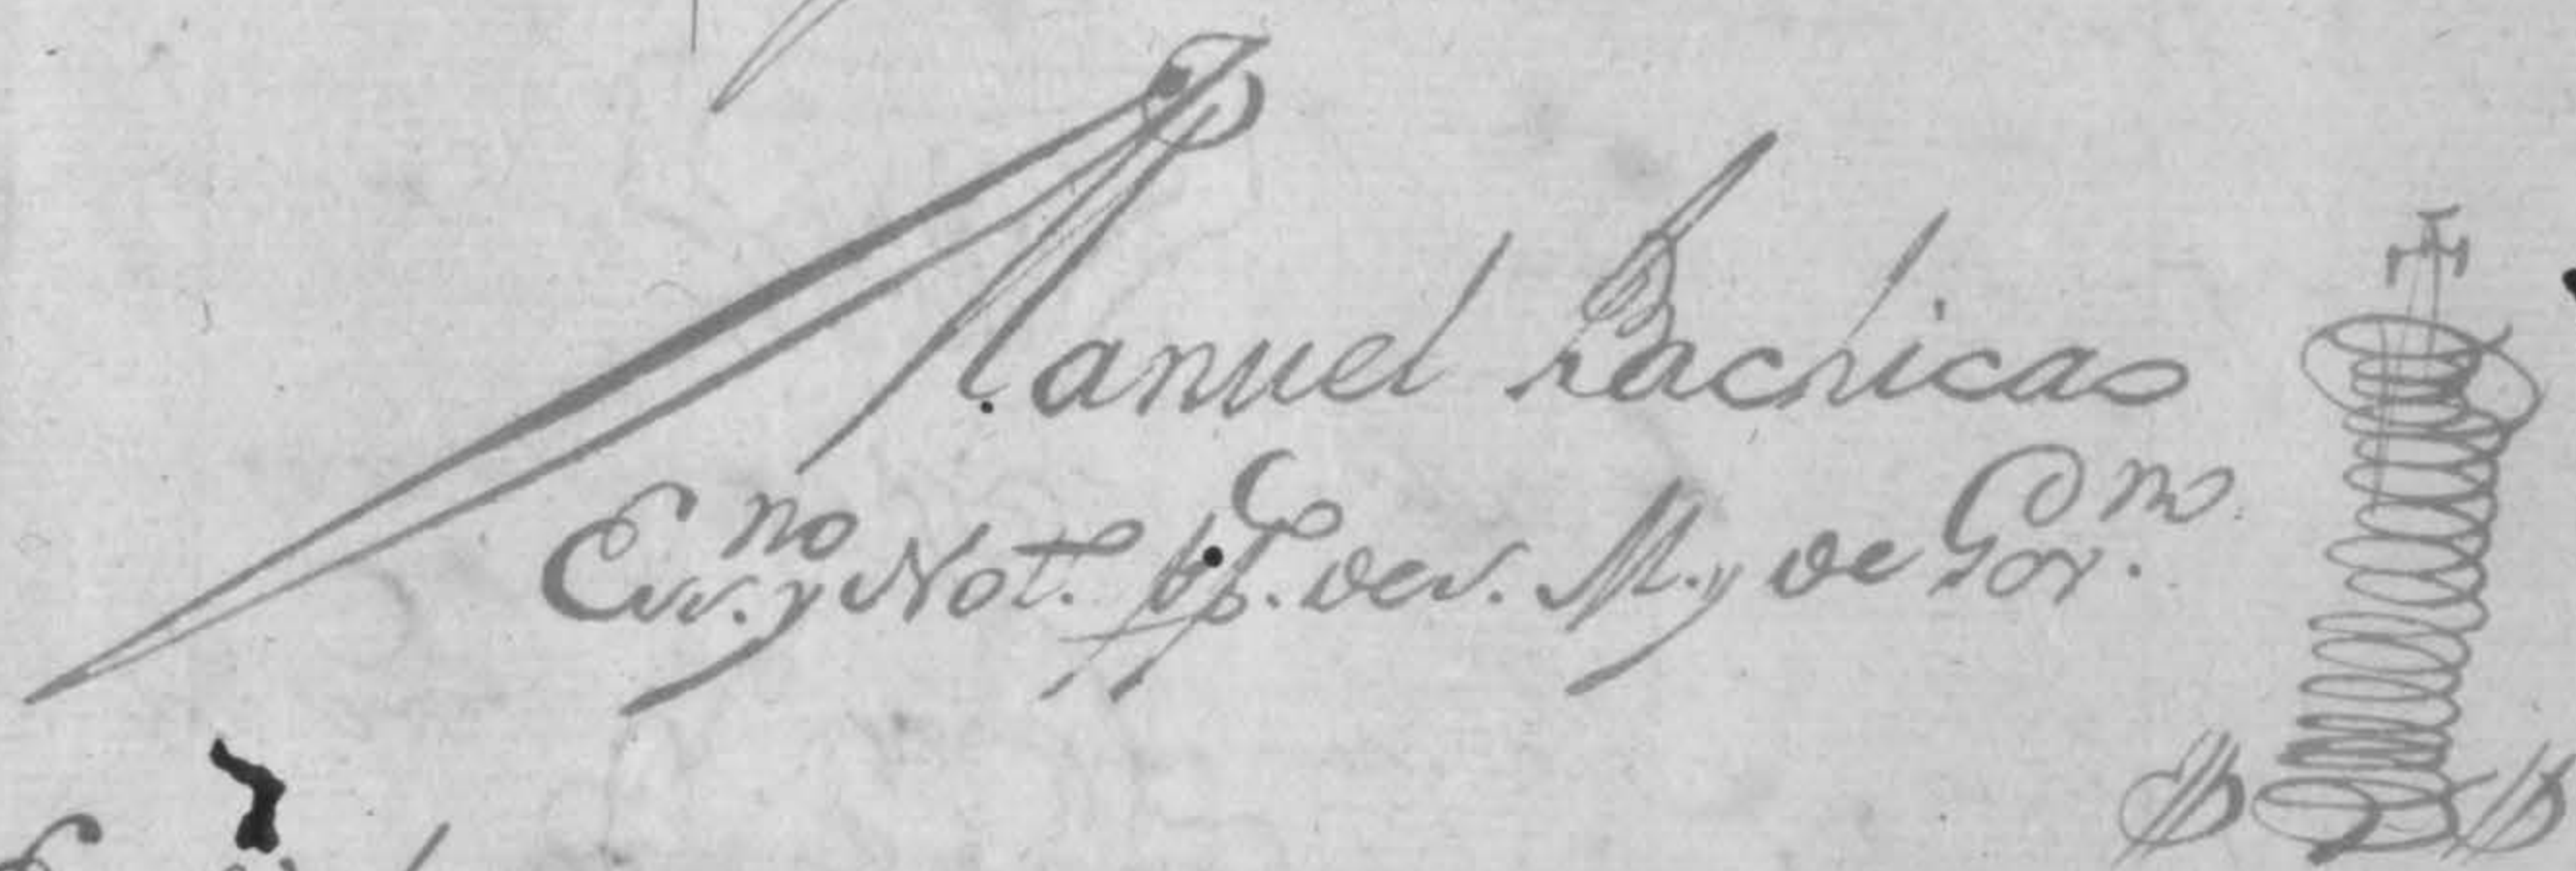 Manuel Bachicao
Ess.no y Not.o pp.co de S. M. y de Gov.no